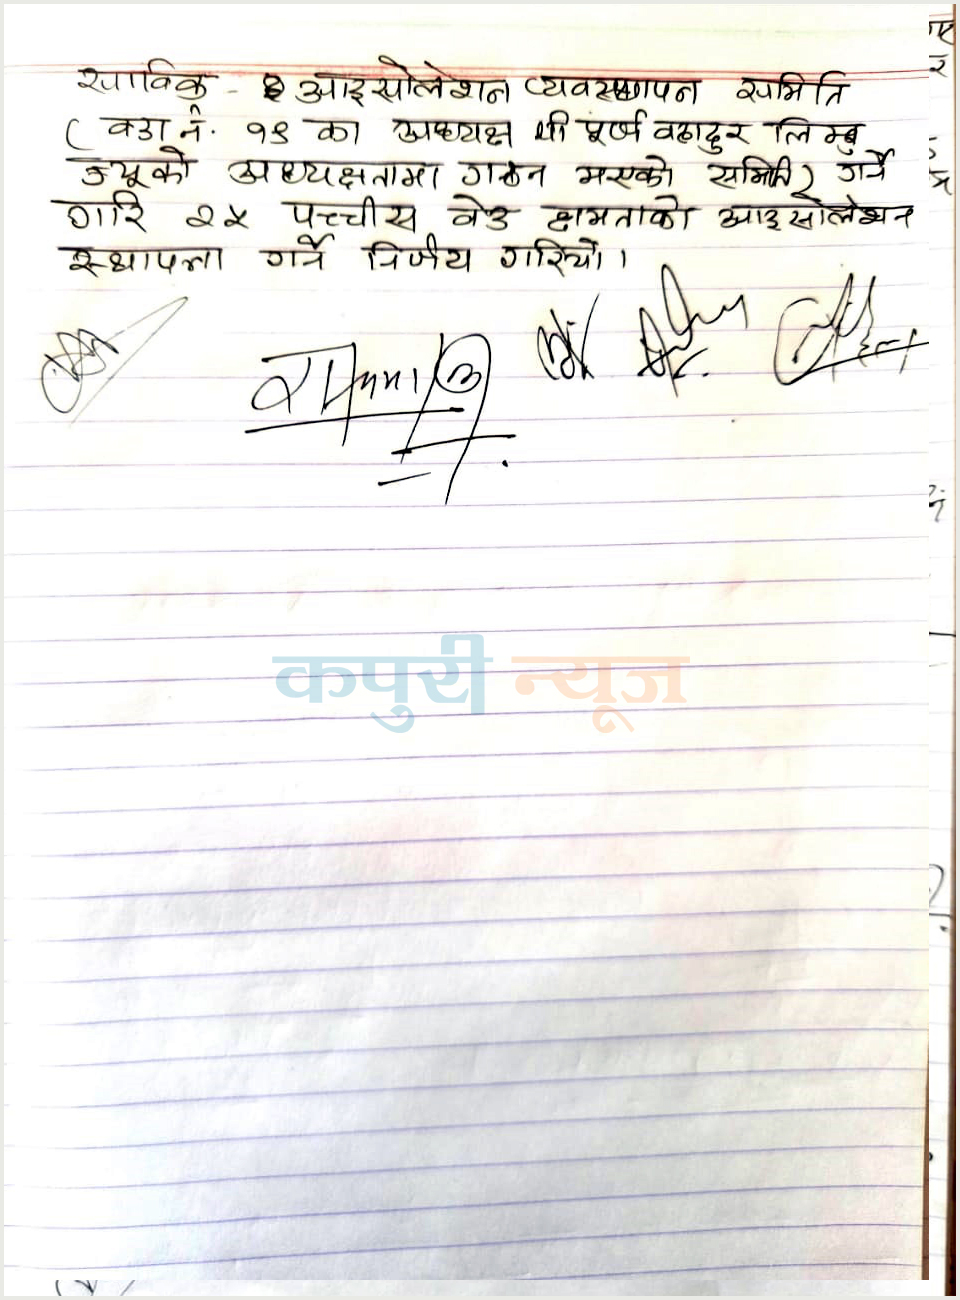 साविक - आइसोलेशन व्यवस्थापन समिति
(वडा नं. १९ का अध्यक्ष श्री पूर्ण वहादुर लिम्बु
ज्यूको अध्यक्षतामा गठन भएको समिति) गर्ने
गरि २५ पच्चीस वेड क्षमताको आइसोलेशन
स्थापना गर्ने निर्णय गरियो।
कपुरी न्यूज